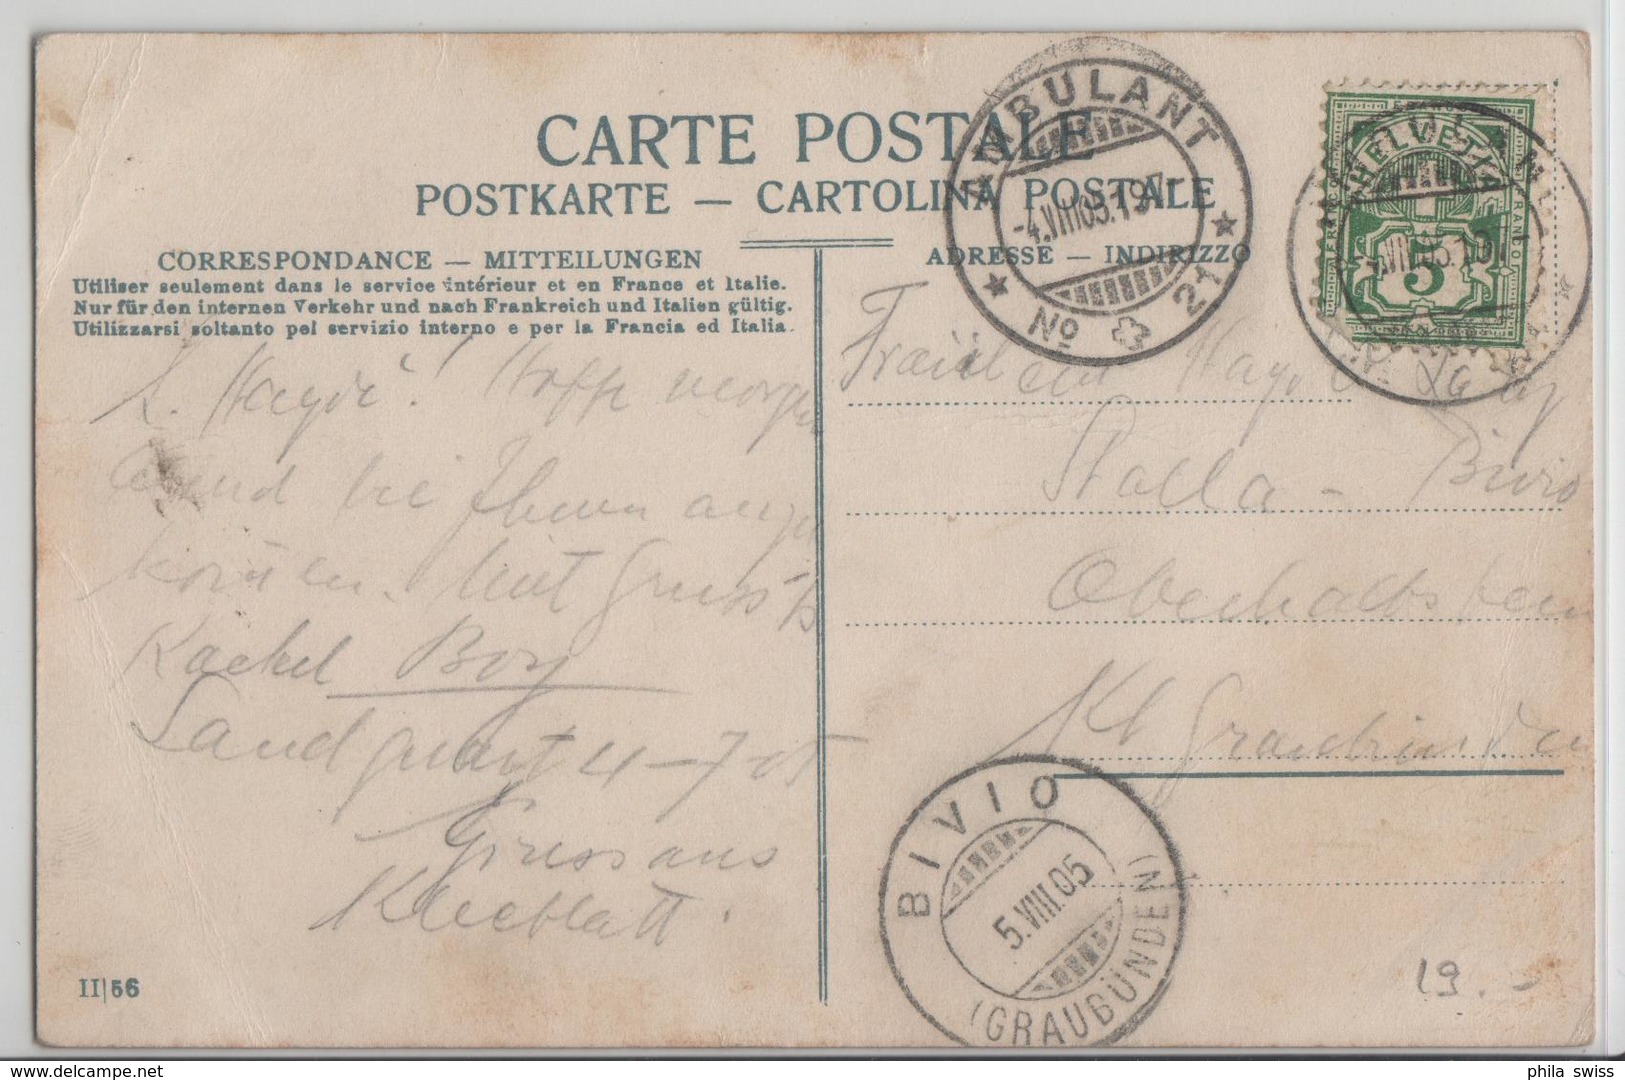 CARTE POSTALE
POSTKARTE — CARTOLINA POSTALE
CORRESPONDANCE — MITTEILUNGEN
Utiliser seulement dans le service intérieur et en France et Italie.
Nur für den internen Verkehr und nach Frankreich und Italien gültig.
Utilizzarsi soltanto pel servizio interno e per la Francia ed Italia.
ADRESSE — INDIRIZZO
AMBULANT
-4.VIII05.19
No 21
HELVETIA
FRANCO
5
VIII.05.19
L. ! Hoffe morgen
Abend bei Ihnen anzu
können. Mit Gruss
Rachel Boy
Landquart 4-7 05
Gruss aus
Kleeblatt.
Fräulein
Stalla - Bivio
Oberhalbstein
Kt Graubünden
BIVIO
5.VIII.05
(GRAUBÜNDEN)
II|56
19.-
phila swiss